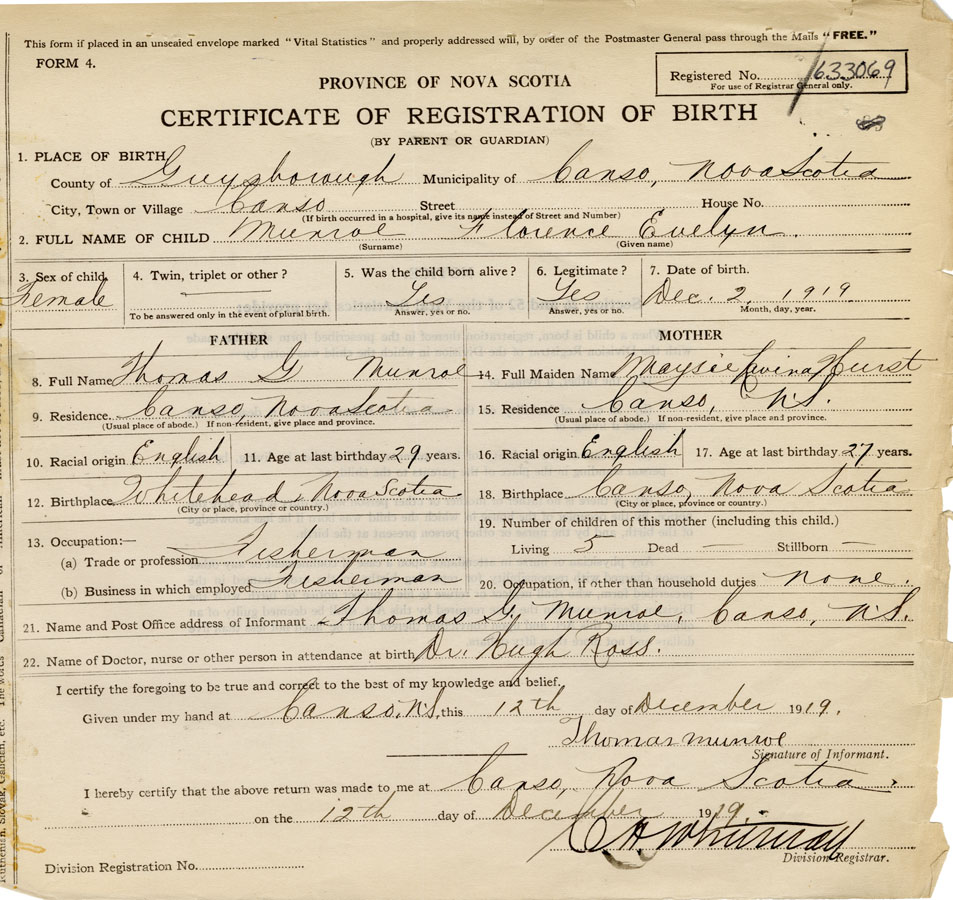 This form if placed in an unsealed envelope marked "Vital Statistics" and properly addressed will, by order of the Postmaster General pass through the Mails "FREE."
FORM 4.
Registered No. 633069
For use of Registrar General only.
PROVINCE OF NOVA SCOTIA
CERTIFICATE OF REGISTRATION OF BIRTH
(BY PARENT OR GUARDIAN)
1. PLACE OF BIRTH
County of Guysborough Municipality of Canso, Nova Scotia
City, Town or Village Canso Street House No.
(If birth occurred in a hospital, give its name instead of Street and Number)
2. FULL NAME OF CHILD Munroe Florence Evelyn.
(Surname) (Given name)
3. Sex of child. Female
4. Twin, triplet or other? —
To be answered only in the event of plural birth.
5. Was the child born alive? Yes
Answer, yes or no.
6. Legitimate? Yes
Answer, yes or no.
7. Date of birth. Dec. 2, 1919
Month, day, year.
FATHER
8. Full Name Thomas G Munroe
9. Residence. Canso, Nova Scotia
(Usual place of abode.) If non-resident, give place and province.
10. Racial origin English 11. Age at last birthday 29 years.
12. Birthplace Whitehead, Nova Scotia
(City or place, province or country.)
13. Occupation:—
(a) Trade or profession Fisherman
(b) Business in which employed Fisherman
MOTHER
14. Full Maiden Name Maysie Hurst
15. Residence Canso, N.S.
(Usual place of abode.) If non-resident, give place and province.
16. Racial origin English 17. Age at last birthday 27 years.
18. Birthplace Canso, Nova Scotia
(City or place, province or country.)
19. Number of children of this mother (including this child.)
Living 5 Dead — Stillborn —
20. Occupation, if other than household duties none.
21. Name and Post Office address of Informant Thomas G. Munroe, Canso, N.S.
22. Name of Doctor, nurse or other person in attendance at birth Dr. Hugh Ross.
I certify the foregoing to be true and correct to the best of my knowledge and belief.
Given under my hand at Canso, N.S. this 12th day of December 1919.
Thomas Munroe
Signature of Informant.
I hereby certify that the above return was made to me at Canso, Nova Scotia
on the 12th day of December 1919.
Division Registrar.
Division Registration No.